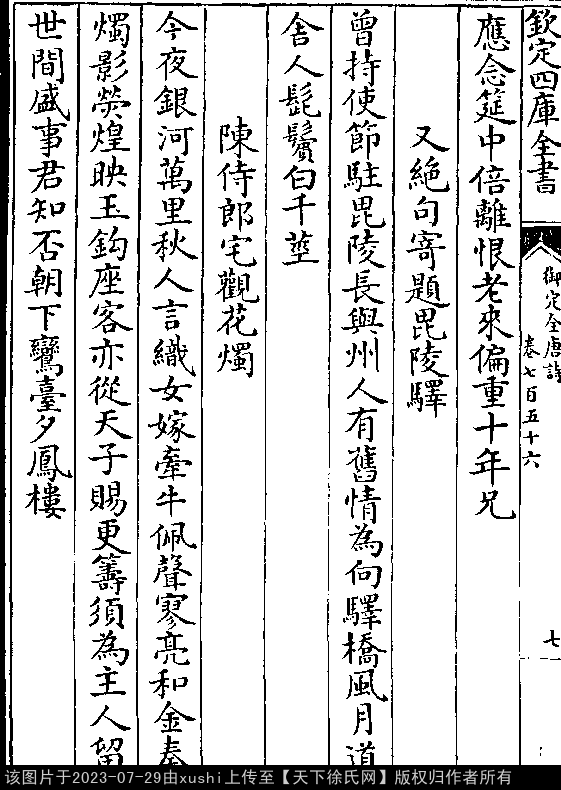 欽定四庫全書
御定全唐詩
卷七百五十六
七
應念筵中倍離恨老來偏重十年兄
又絶句寄題毘陵驛
曾持使節駐毘陵長與州人有舊情為向驛橋風月道
舍人髭鬢白千莖
陳侍郎宅觀花燭
今夜銀河萬里秋人言織女嫁牽牛佩聲寥亮和金奏
燭影熒煌映玉鈎座客亦從天子賜更籌須為主人留
世間盛事君知否朝下鸞臺夕鳳樓
该图片于2023-07-29由xushi上传至【天下徐氏网】版权归作者所有